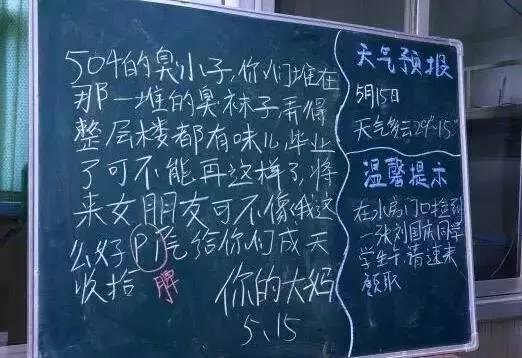 504的臭小子,你们堆在
那一堆的臭袜子,弄得
整层楼都有味儿,毕业
了可不能再这样了,将
来女朋友可不像我这
么好PI气给你们成天
收拾 脾
你的大妈
5、15
天气预报
5月15日
天气多云29°-15°
温馨提示
在水房门口捡到
一张刘国庆同学
学生卡,请速来
领取